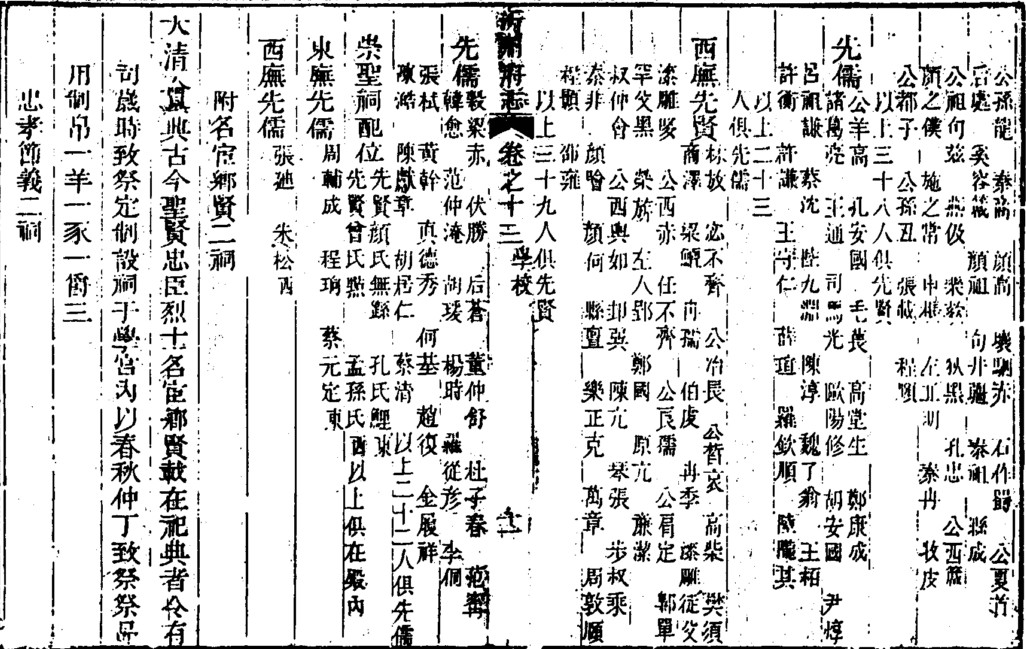 公孫龍 秦商 顏高 壤駟赤 石作蜀 公夏首
后處 奚容蒧 顏祖 句井疆 秦祖 縣成
公祖句茲 燕伋 樂欬 狄黑 孔忠 公西蒧
顏之僕 施之常 申棖 左丘明 秦冉 牧皮
公都子 公孫丑 張載 程頤
以上三十八人俱先賢
先儒公羊高 孔安國 毛萇 高堂生 鄭康成
諸葛亮 王通 司馬光 歐陽修 胡安國 尹焞
呂祖謙 蔡沈 陸九淵 陳淳 魏了翁 王柏
許衡 許謙 王守仁 薛瑄 羅欽順 陸隴其
以上二十三
人俱先儒
西廡先賢林放 宓不齊 公冶長 公皙哀 高柴 樊須
商澤 梁鱣 冉孺 伯虔 冉季 漆雕徒父
漆雕哆 公西赤 任不齊 公良孺 公肩定 鄡單
罕父黑 榮旂 左人郢 鄭國 原亢 廉潔
叔仲會 公西輿如 邽巽 陳亢 琴張 步叔乘
秦非 顏噲 顏何 縣亶 樂正克 萬章 周敦頤
程顥 邵雍
以上三十九人俱先賢
府志 卷之十三 學校
先儒穀梁赤 伏勝 后蒼 董仲舒 杜子春 范甯
韓愈 范仲淹 胡瑗 楊時 羅從彥 李侗
張栻 黃榦 真德秀 何基 趙復 金履祥
陳澔 陳獻章 胡居仁 蔡清 以上二十二人俱先儒
崇聖祠配位先賢顏氏無繇 孔氏鯉東
先賢曾氏點 孟孫氏西以上俱在殿內
東廡先儒 周輔成 程珦 蔡元定東
西廡先儒 張迪 朱松西
附名宦鄉賢二祠
大清會典古今聖賢忠臣烈士名宦鄉賢載在祀典者令有
司歲時致祭定制設祠于學宮內以春秋仲丁致祭祭品
用制帛一羊一豕一爵三
忠孝節義二祠